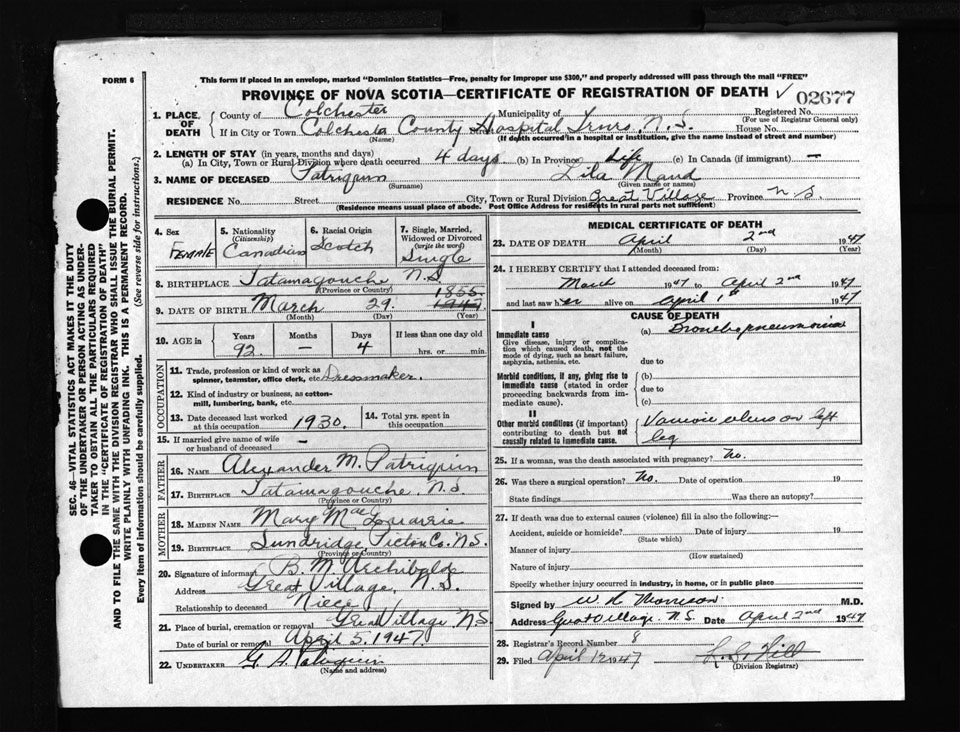 FORM 6
This form if placed in an envelope, marked "Dominion Statistics—Free, penalty for improper use $300," and properly addressed will pass through the mail "FREE"
PROVINCE OF NOVA SCOTIA—CERTIFICATE OF REGISTRATION OF DEATH
✓ 02677
1. PLACE OF DEATH { County of Colchester Municipality of Registered No.
(For use of Registrar General only)
If in City or Town Colchester County Hospital Truro, N.S. House No.
(Name) (If death occurred in a hospital or institution, give the name instead of street and number)
2. LENGTH OF STAY (in years, months and days)
(a) In City, Town or Rural Division where death occurred 4 days (b) In Province Life (c) In Canada (if immigrant) —
3. NAME OF DECEASED Patriquin Lila Maud
(Surname) (Given name or names)
RESIDENCE No. Street City, Town or Rural Division Great Village Province N.S.
(Residence means usual place of abode. Post Office Address for residents in rural parts not sufficient)
4. Sex FEMALE
5. Nationality (Citizenship) Canadian
6. Racial Origin Scotch
7. Single, Married, Widowed or Divorced (write the word) Single
8. BIRTHPLACE Tatamagouche N.S.
(Province or Country)
9. DATE OF BIRTH March 29. 1855 1947
(Month) (Day) (Year)
10. AGE in Years Months Days If less than one day old
92. — 4 hrs. or min.
OCCUPATION
11. Trade, profession or kind of work as spinner, teamster, office clerk, etc. Dressmaker.
12. Kind of industry or business, as cotton-mill, lumbering, bank, etc.
13. Date deceased last worked at this occupation 1930.
14. Total yrs. spent in this occupation
15. If married give name of wife or husband of deceased —
FATHER
16. NAME Alexander M. Patriquin
17. BIRTHPLACE Tatamagouche, N.S.
(Province or Country)
MOTHER
18. MAIDEN NAME Mary Mac Quarrie
19. BIRTHPLACE Lundridge Pictou Co. N.S.
(Province or Country)
20. Signature of informant B. M. Archibald
Address Great Village, N.S.
Relationship to deceased Niece
21. Place of burial, cremation or removal Great Village N.S
Date of burial or removal April 5. 1947.
22. UNDERTAKER G. A. Patriquin
(Name and address)
MEDICAL CERTIFICATE OF DEATH
23. DATE OF DEATH April 2nd 1947
(Month) (Day) (Year)
24. I HEREBY CERTIFY that I attended deceased from:
March 1947 to April 2nd 1947
and last saw her alive on April 1st 1947
CAUSE OF DEATH
I
Immediate cause (a) Bronchopneumonia
Give disease, injury or complication which caused death, not the mode of dying, such as heart failure, asphyxia, asthenia, etc.
due to
Morbid conditions, if any, giving rise to immediate cause (stated in order proceeding backwards from immediate cause).
(b)
due to
(c)
II
Other morbid conditions (if important) contributing to death but not causally related to immediate cause.
Varicose ulcers on left
leg
25. If a woman, was the death associated with pregnancy? No.
26. Was there a surgical operation? No. Date of operation 19
State findings Was there an autopsy?
27. If death was due to external causes (violence) fill in also the following:—
Accident, suicide or homicide? Date of injury 19
(State which)
Manner of injury
(How sustained)
Nature of injury
Specify whether injury occurred in industry, in home, or in public place
Signed by W H Morrison M.D.
Address Great Village. N.S. Date April 2nd 1947
28. Registrar's Record Number 8
29. Filed April 1947 Hill
(Division Registrar)
SEC. 46—VITAL STATISTICS ACT MAKES IT THE DUTY
OF THE UNDERTAKER OR PERSON ACTING AS UNDERTAKER TO OBTAIN ALL THE PARTICULARS REQUIRED
IN THE "CERTIFICATE OF REGISTRATION OF DEATH"
AND TO FILE THE SAME WITH THE DIVISION REGISTRAR WHO SHALL ISSUE THE BURIAL PERMIT.
WRITE PLAINLY WITH UNFADING INK. THIS IS A PERMANENT RECORD.
Every item of information should be carefully supplied. (See reverse side for instructions.)